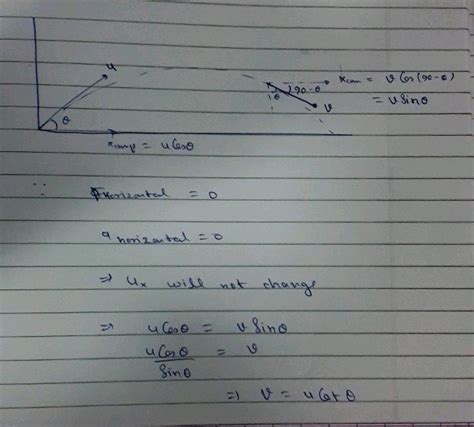 u
θ
x comp = u Cosθ
θ
90-θ
v
x com = v Cos(90-θ)
= v Sinθ
∵ Fhorizontal = 0
a horizontal = 0
⇒ ux will not change
⇒ u Cosθ = v Sinθ
u Cosθ / Sinθ = v
⇒ v = u Cot θ